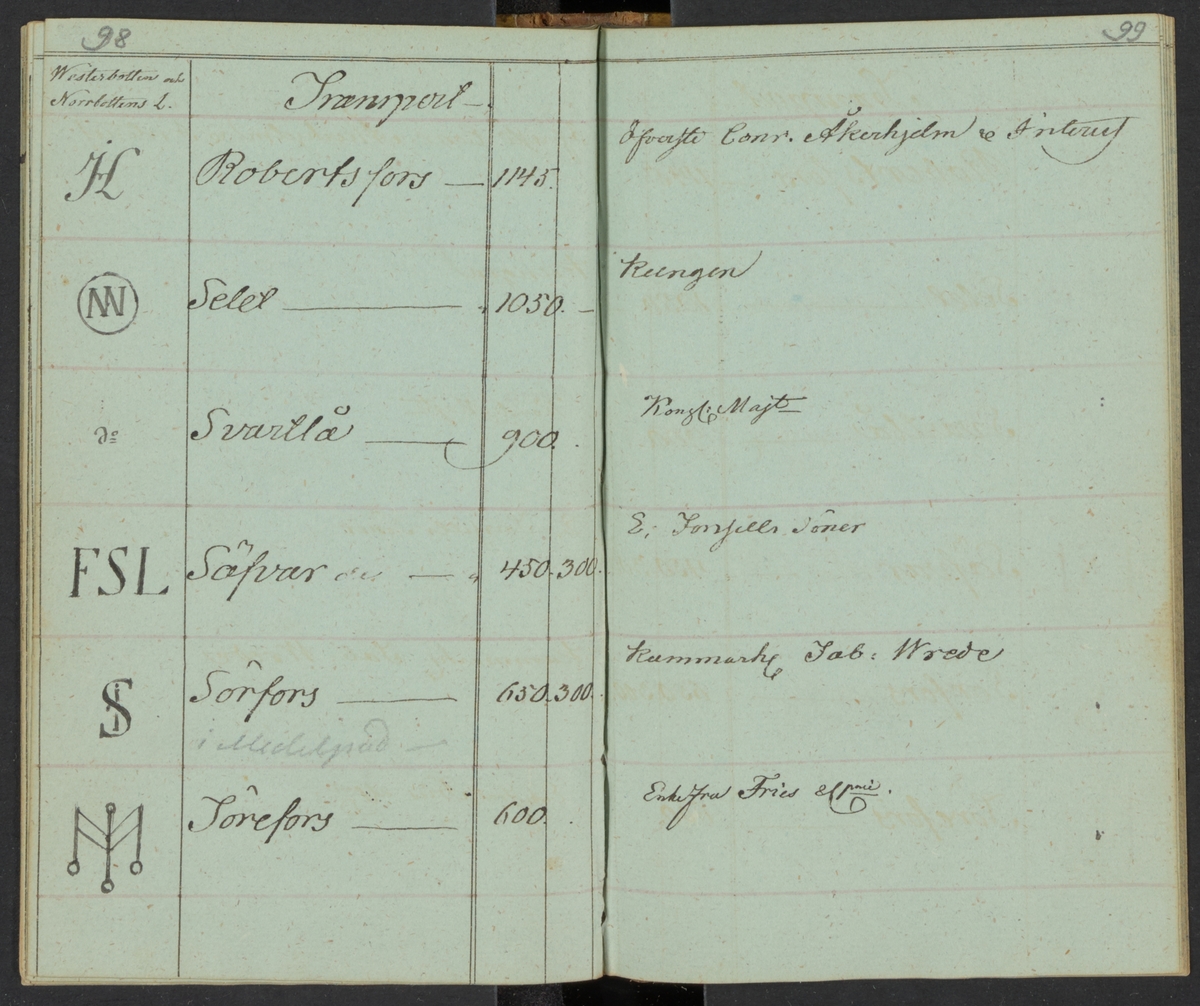 98
99
Westerbotten och
Norrbottens L.
Transport
JH Robertsfors — 1145. Öfverste Conr. Åkerhjelm & Interess
NN Selet — 1050. — Kungen
do Svartlå — 900. Kongl: Majt
FSL Säfvar — 450. 300. E; Forssells Söner
S Sörfors — 650. 300. Kammarh Jab: Wrede
i Medelpad —
Törefors — 600. Enkefru Fries